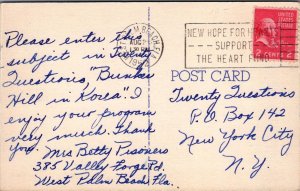 Please enter this
subject in Twenty
Questions, "Bunker
Hill in Korea". I
enjoy your program
very much. Thank
you.
Mrs Betty Pisoners
385 Valley Forge Rd.
West Palm Beach, Fla.
PALM BEACH, FLA.
AUG
NEW HOPE FOR
SUPPORT
THE HEART FUND
POST CARD
Twenty Questions
P.O. Box 142
New York City
N.Y.